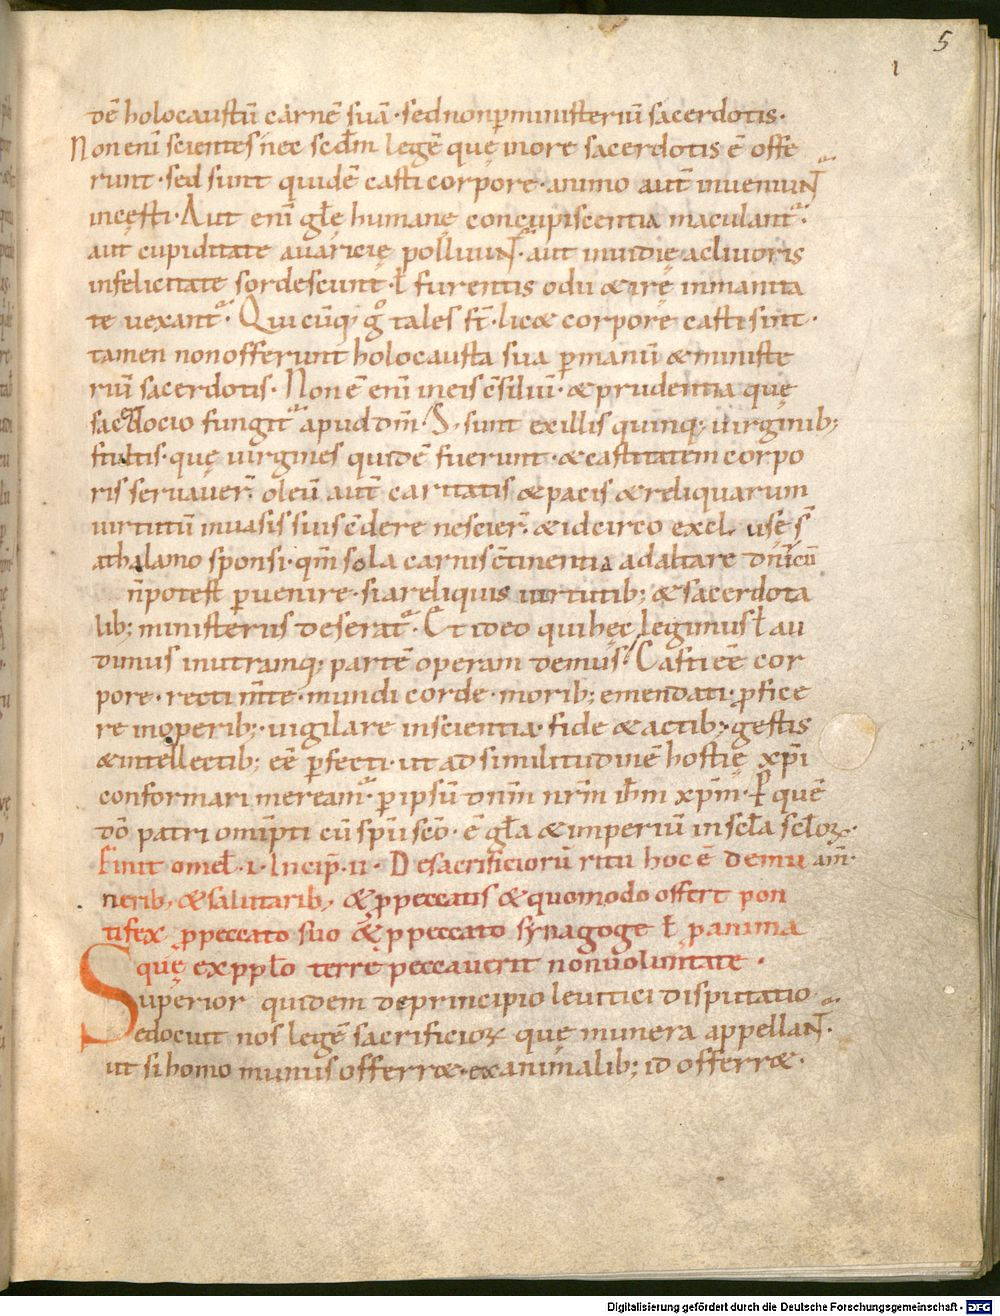 5
1
dē holocaustū carnē suā · sed non p̄ ministeriū sacerdotis ·
Non eni scientes nec scd̄m legē quę in ore sacerdotis ē offe
runt · sed sunt quidē casti corpore · animo aut̄ inueniuNT̄
incęsti · Aut eni gl̄ę humanę concupiscentia maculant̄ ·
aut cupiditate auaricię polluuNT̄ · aut inuidię ac liuoris
infelicitate sordescunt · ł furentis odii & irę inmanita
te uexant̄ · Qui cūq; g̊ tales st̄ · lic& corpore casti sint ·
tamen non offerunt holocausta sua p̄ manū & ministe
riū sacerdotis · Non ē eni in eis c̄siliū · & prudentia quę
sacerdocio fungit̄ apud dm̄ · S · sunt ex illis quinq; uirginib;
stultis · quę uirgines quidē fuerunt · & castitatem corpo
ris seruauer̄ · oleū aut̄ caritatis & pacis & reliquarum
uirtutū in uasis suis c̄dere nescier̄ · & idcirco excl usę s̄
a thalamo sponsi · qm̄ sola carnis c̄tinentia ad altare dn̄icū
n̄ potest p̄uenire · si a reliquis uirtutib; & sacerdota
lib; ministeriis deserat̄ · Et ideo qui hęc legimus ł au
dimus in utramq; partē operam demus · Casti eē cor
pore · recti m̄te · mundi corde · morib; emendati · p̄fice
re in operib; · uigilare in scientia · fide & actib; · gestis
& intellectib; eē p̄fecti · ut ad similitudinē hostię xp̄i
conformari meream̄ · p̄ ipsū dn̄m nr̄m ih̄m xp̄m · P̄ quē
dō patri omīpti cū sp̄u sc̄o · ē gl̄a & imperiū in scl̄a scl̄oꝝ ·
am̄ ·
Finit omel̄ · I · Incip̄ · II · De sacrificiorū ritu hoc ē de mu
nerib; & salutarib; & p̄ peccatis & quomodo offert pon
tifex p̄ peccato suo & p̄ peccato synagogę ł p̄ anima
quę ex ppl̄o terrę peccauerit non uoluntate ·
Superior quidem de principio leuitici disputatio
edocuit nos legē sacrificioꝝ quę munera appellaNT̄ ·
ut si homo munus offerr& · ex animalib; id offerr& ·
Digitalisierung gefördert durch die Deutsche Forschungsgemeinschaft - DFG